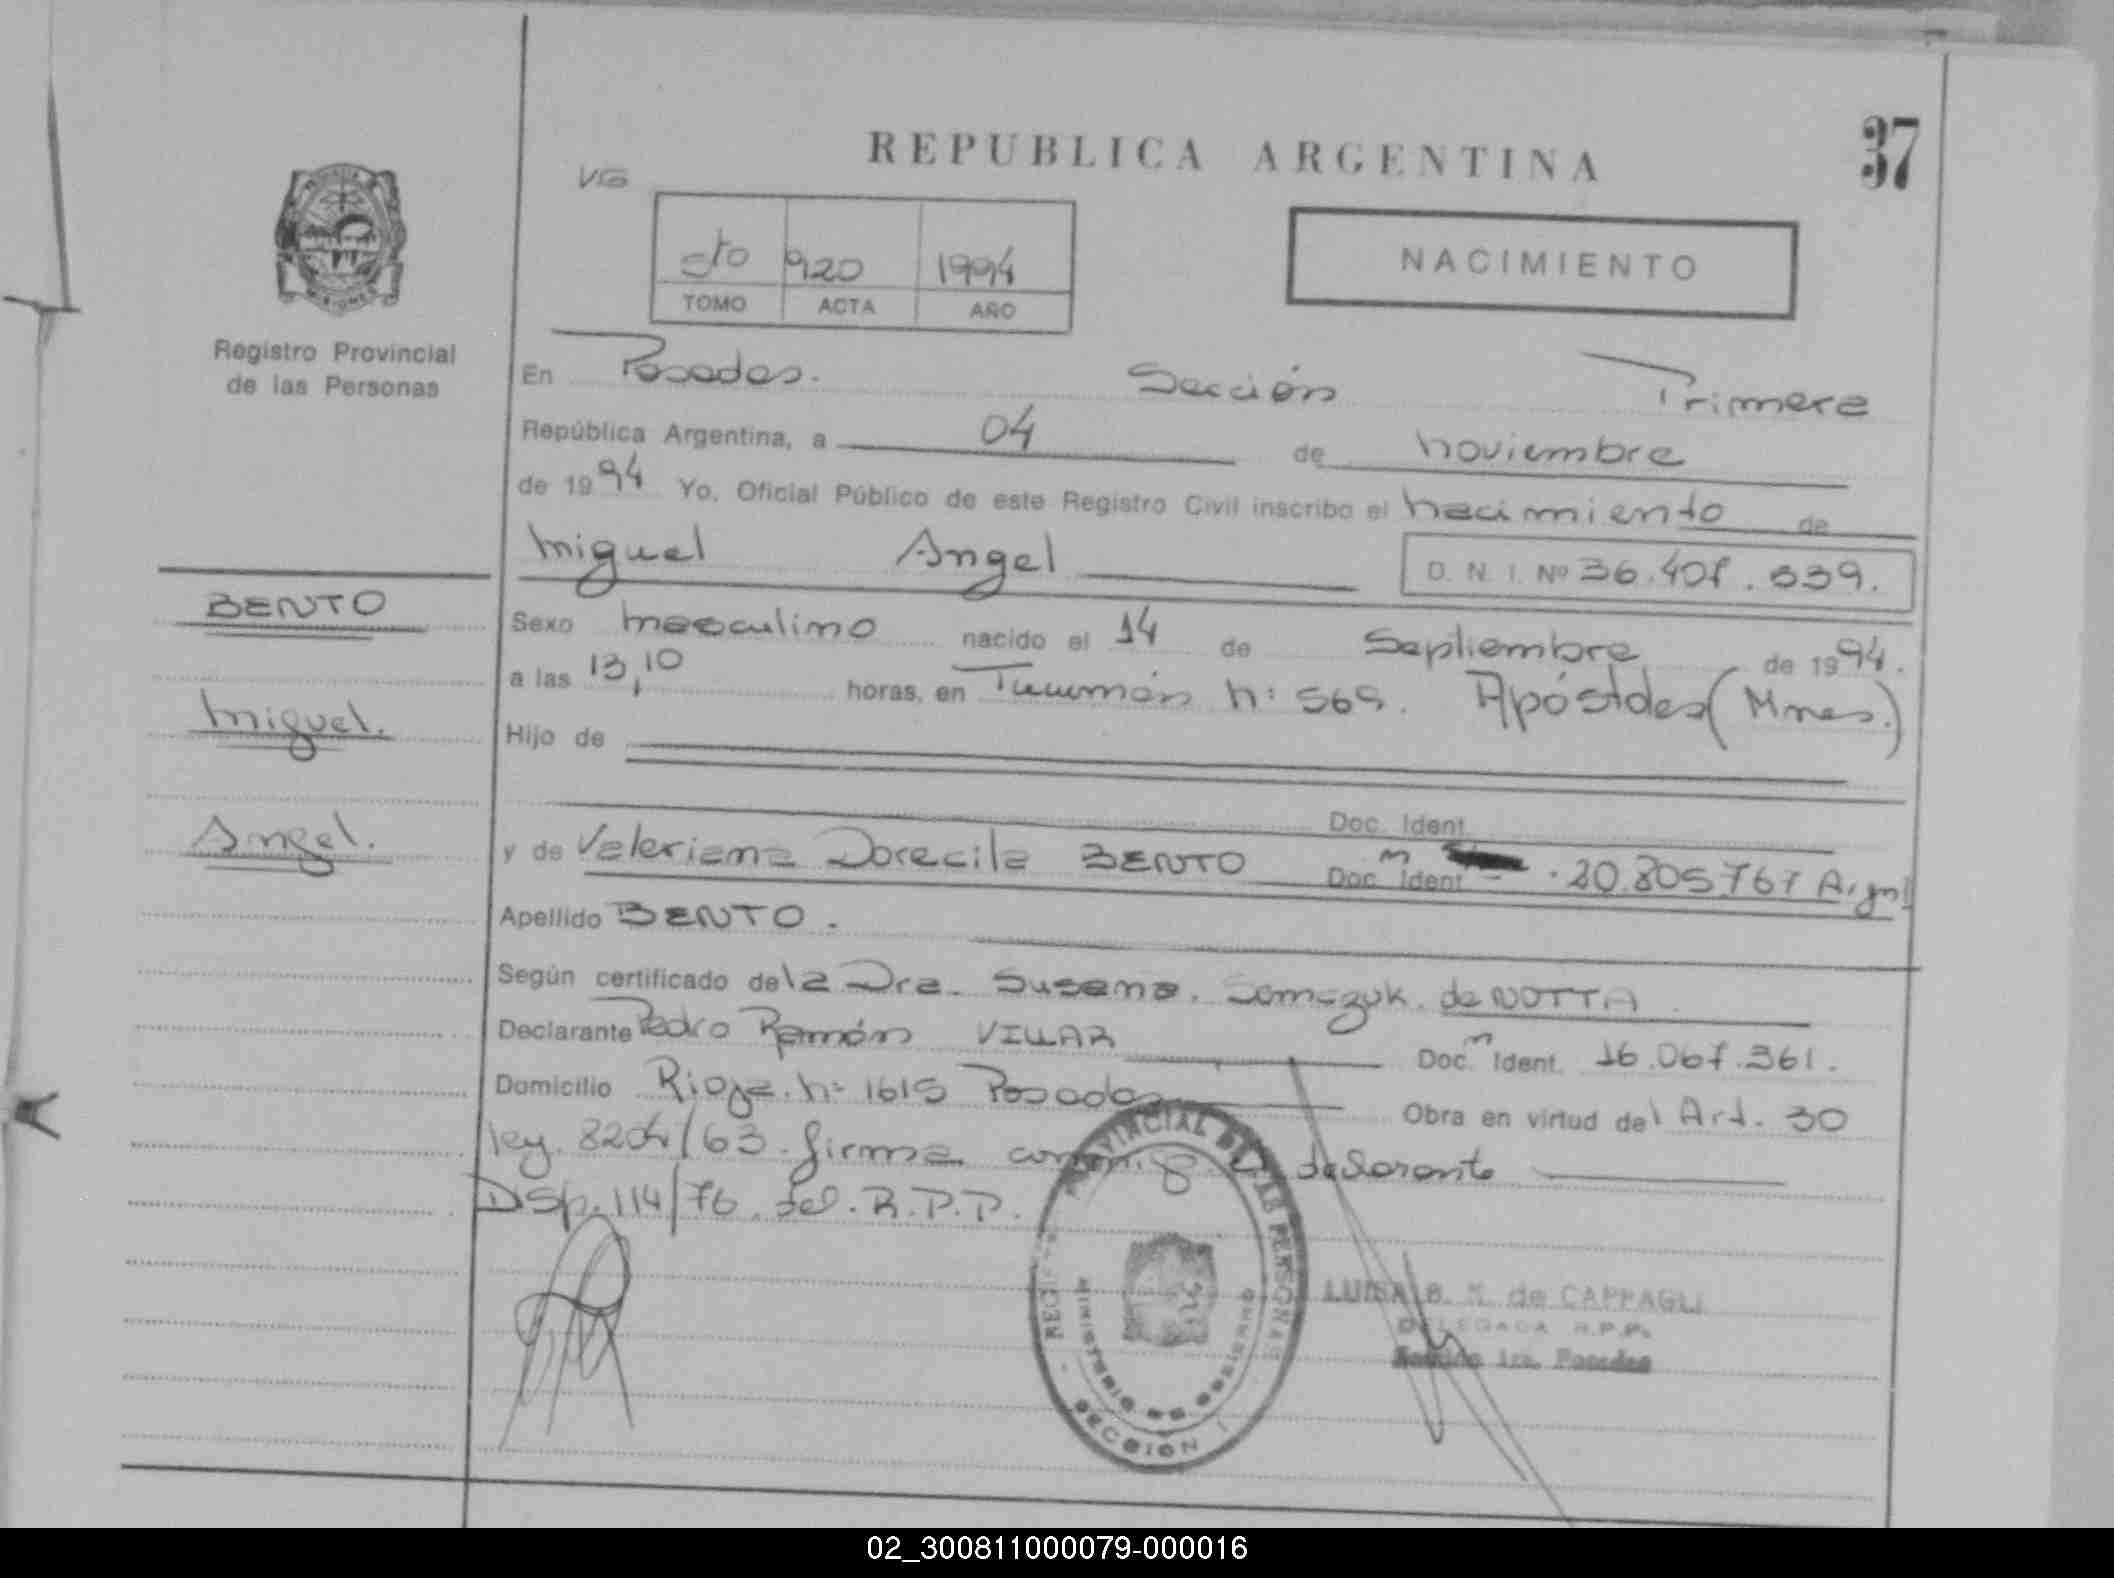 37
REPUBLICA ARGENTINA
VG
NACIMIENTO
5to 920 1994
TOMO ACTA AÑO
PROVINCIA DE MISIONES
Registro Provincial
de las Personas
En Posadas. Sección Primera
República Argentina, a 04 de noviembre
de 1994 Yo, Oficial Público de este Registro Civil inscribo el nacimiento de
Miguel Angel D. N. I. Nº 36.407.339.
BENTO
Miguel.
Angel.
Sexo masculino nacido el 14 de Septiembre de 1994.
a las 13,10 horas, en Tucumán n: 569. Apóstoles (Mnes.)
Hijo de
Doc. Ident.
y de Valeriana Doracila BENTO Doc. Ident. 20.805767 Argn
Apellido BENTO.
Según certificado de la Dra. Susana. Somczyk. de NOTTA
Declarante Pedro Ramón VILLAR Doc. Ident. 16.067.361.
Domicilio Rioja. nº 1615 Posadas Obra en virtud del Art. 30
ley. 8204/63. firma conmigo declarante
Disp. 114/76. del. R.P.P.
REGISTRO PROVINCIAL DE LAS PERSONAS
MINISTERIO DE GOBIERNO
SECCION 1
LUISA B. M. de CAPPAGLI
DELEGADA R.P.P.
Sección 1ra. Posadas
02_300811000079-000016